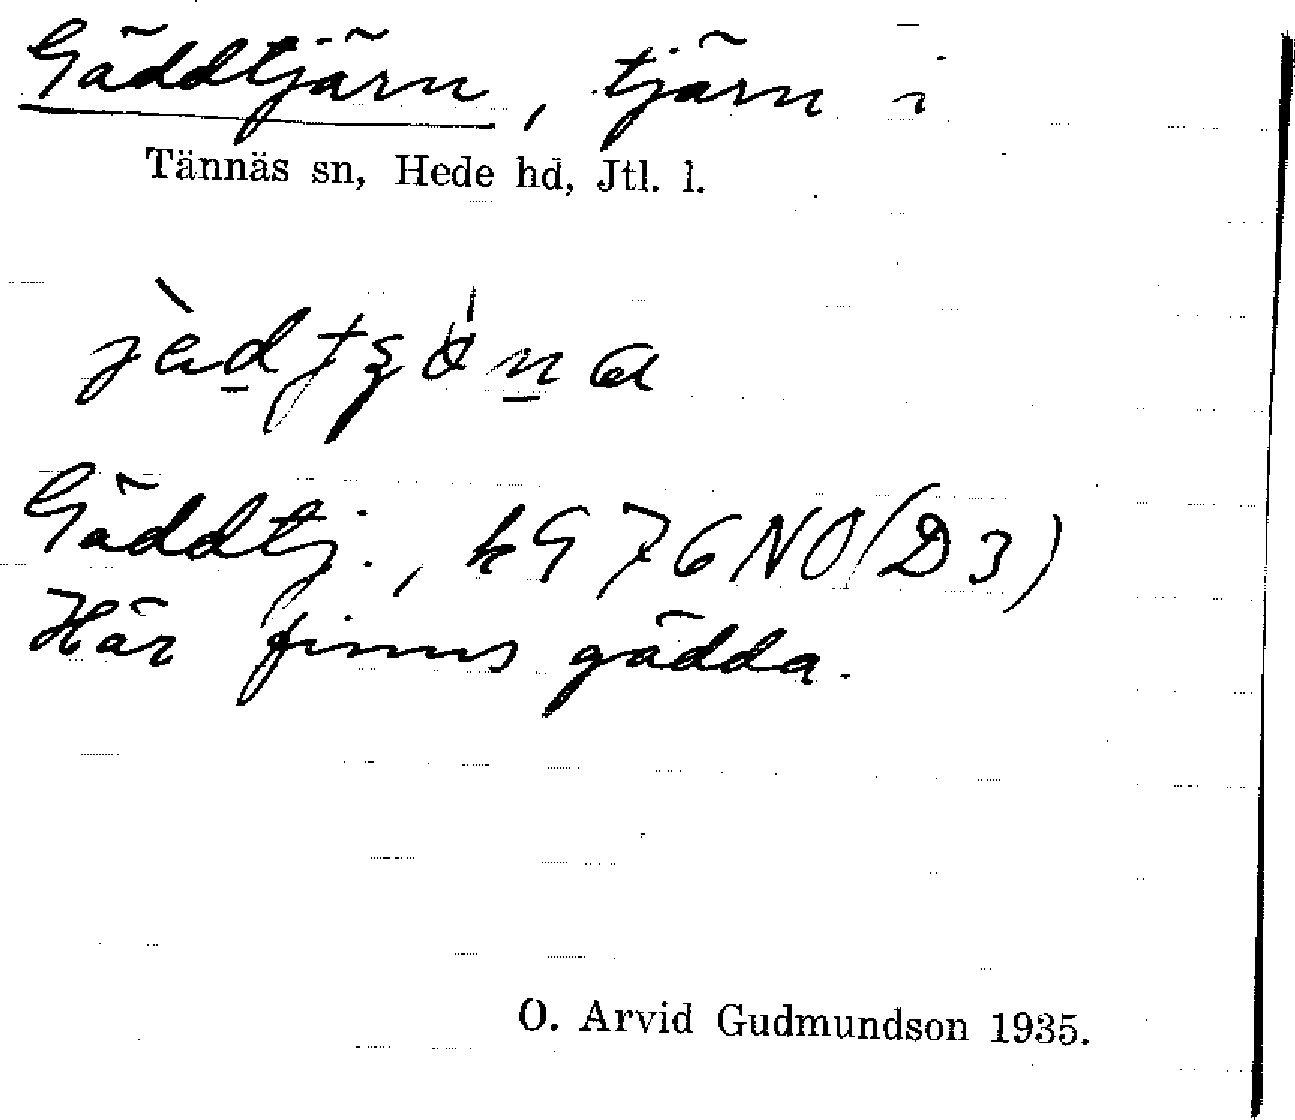 Gäddtjärn, tjärn i
Tännäs sn, Hede hd, Jtl. l.
Gäddtj., kG 76NO(D3)
Här finns gädda.
O. Arvid Gudmundson 1935.